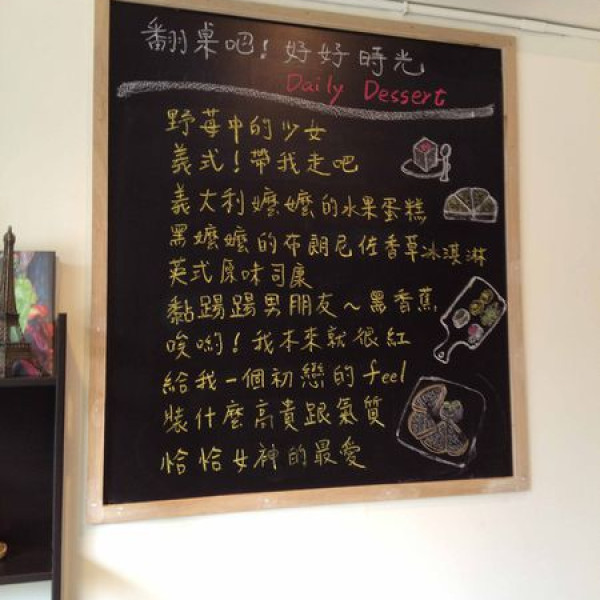 翻桌吧！好好時光
Daily Dessert
野莓中的少女
義式！帶我走吧
義大利嬤嬤的水果蛋糕
黑嬤嬤的布朗尼佐香草冰淇淋
英式原味司康
黏踢踢男朋友～黑香蕉
唉喲！我本來就很紅
給我一個初戀的feel
裝什麼高貴跟氣質
恰恰女神的最愛